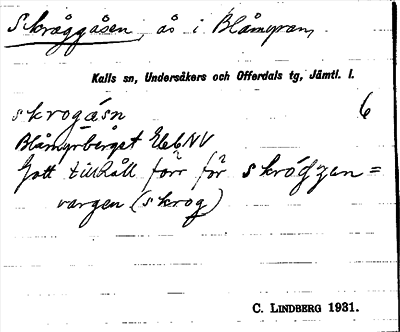 Skråggåsen, ås i Blåmyran,
Kalls sn, Undersåkers och Offerdals tg, Jämtl. l.
skrogásn 6
Blåmyrberget NV
Gott tillhåll förr för skróggen =
vargen (skrog)
C. LINDBERG 1931.